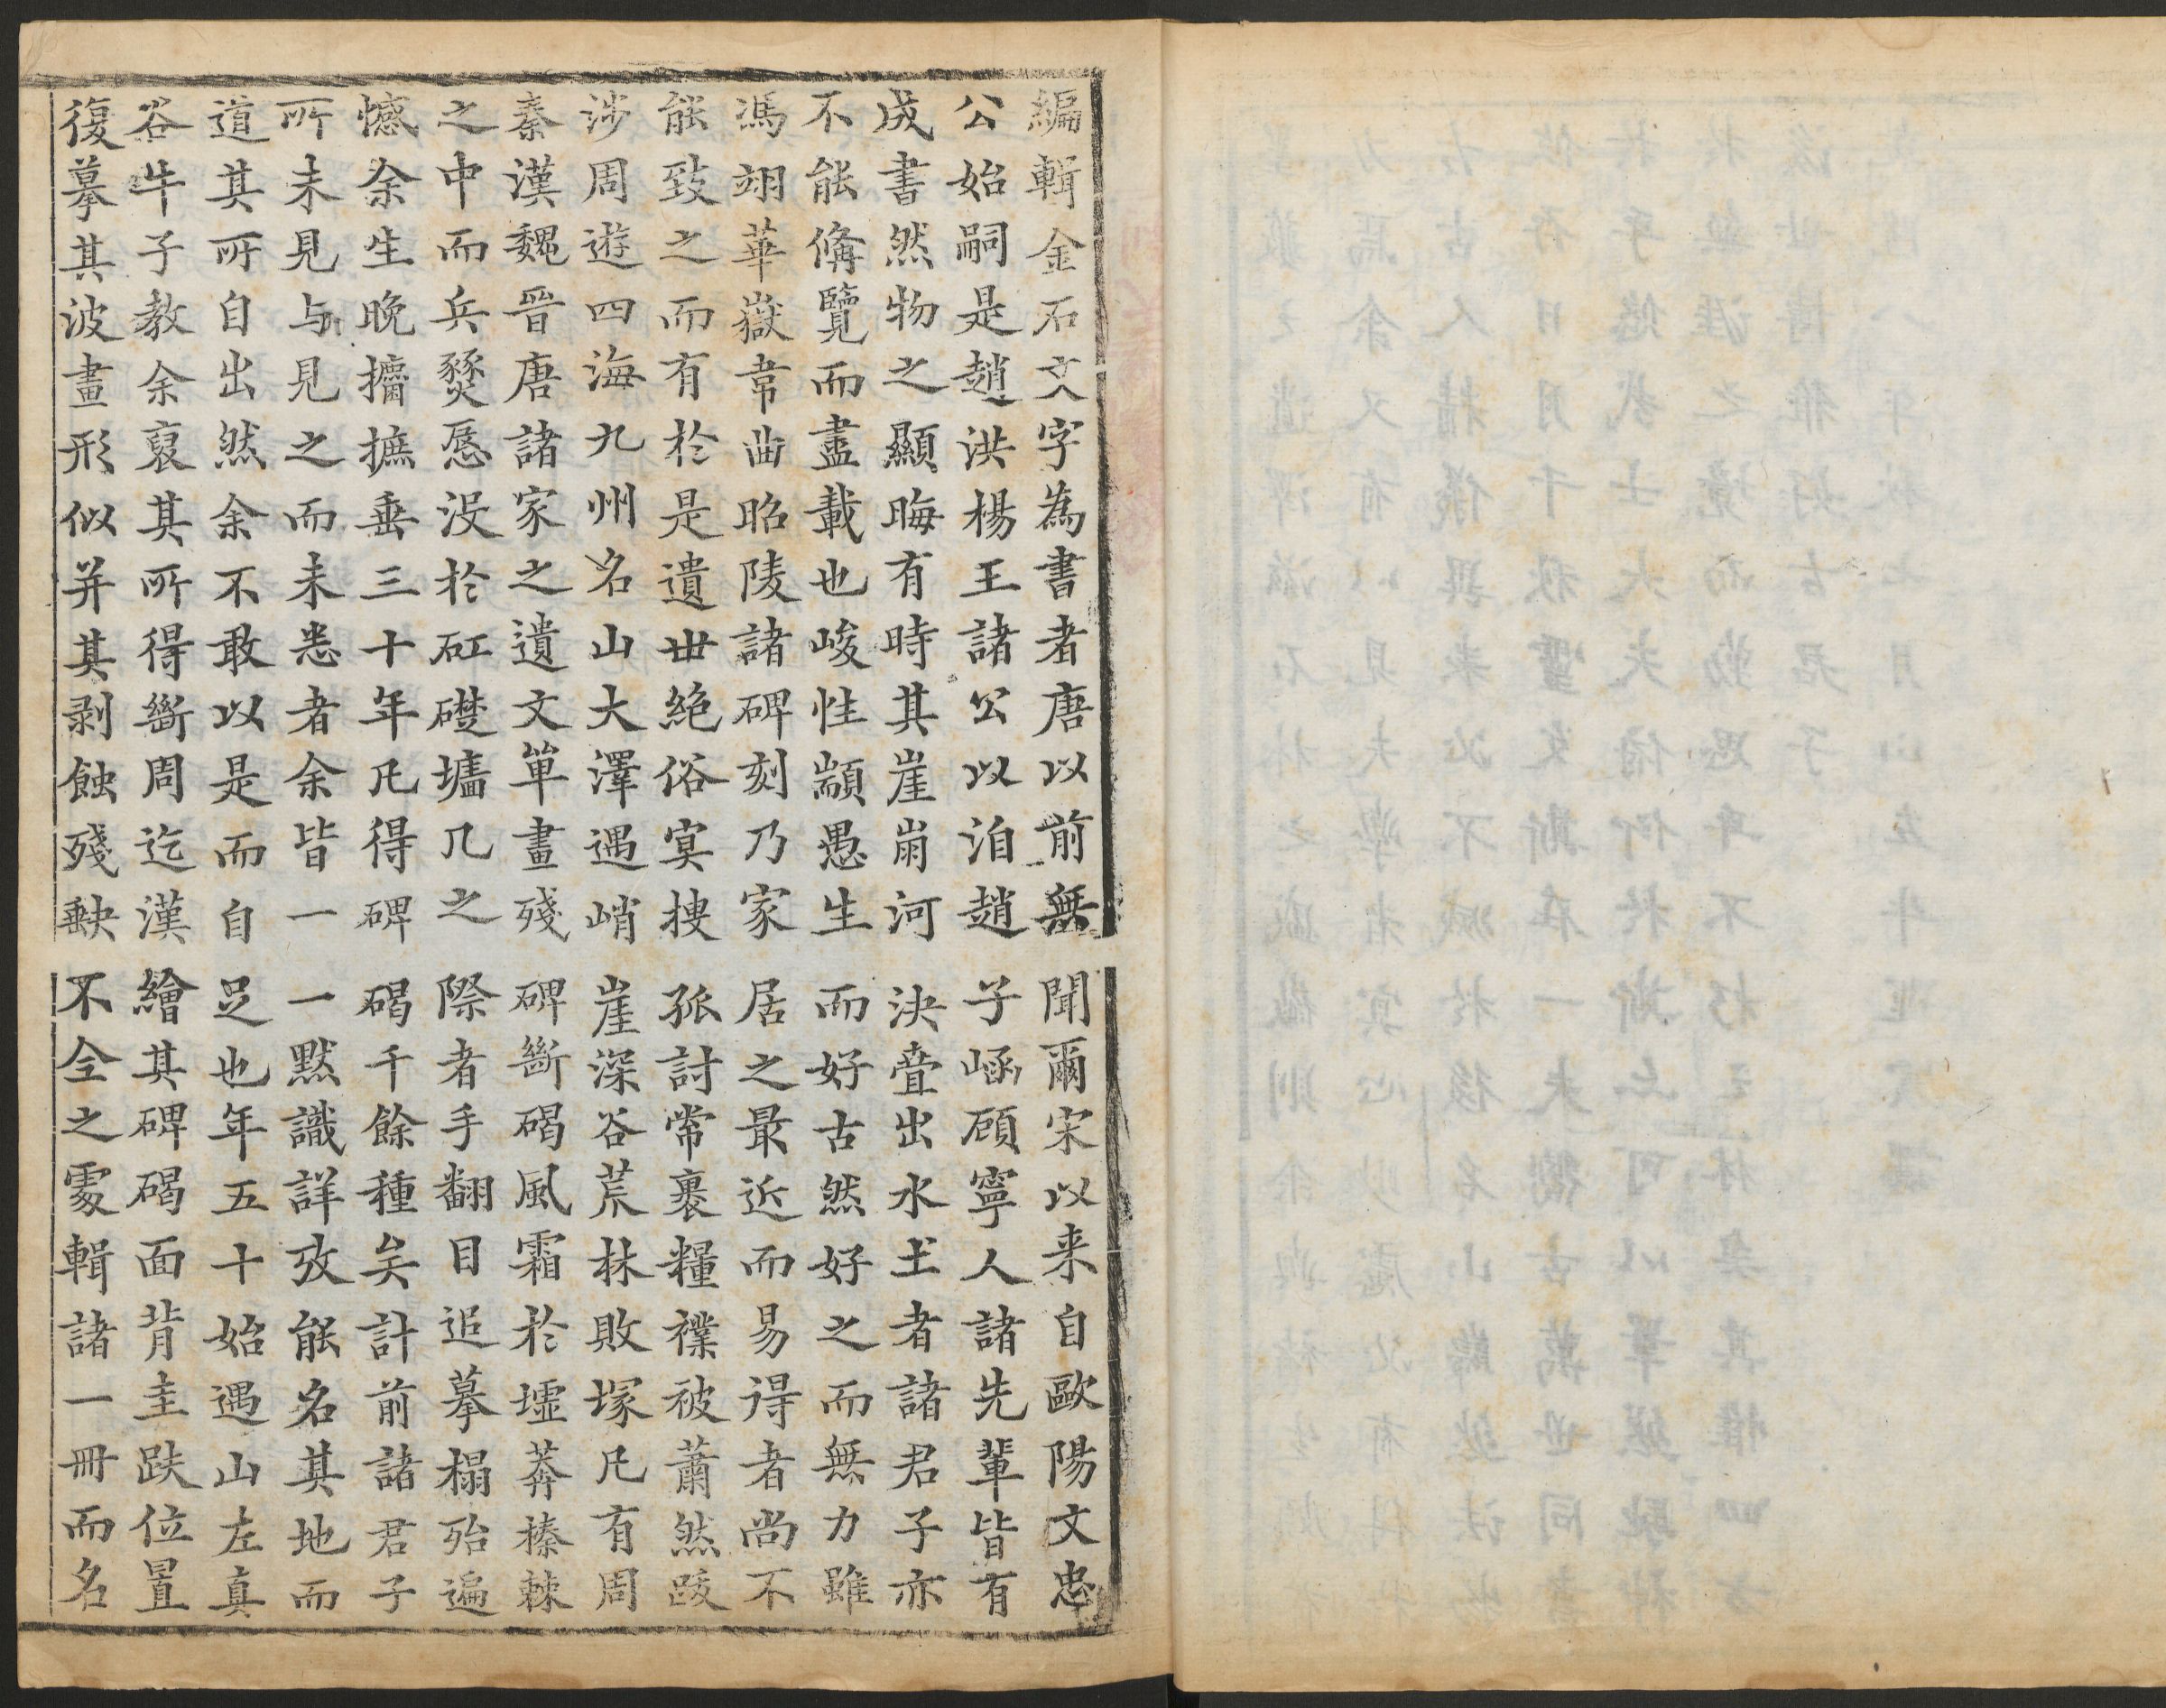 編輯金石文字為書者唐以前無聞爾宋以来自歐陽文忠
公始嗣是趙洪楊王諸公以洎趙子函顧寧人諸先輩皆有
成書然物之顯晦有時其崖崩河決壹出水土者諸君子亦
不能俻覽而盡載也峻性顓愚生而好古然好之而無力雖
馮翊華嶽韋曲昭陵諸碑刻乃家居之最近而易得者尚不
能致之而有於是遺世絶俗㝠搜孤討常裹糧襆被蕭然跋
涉周遊四海九州名山大澤遇峭崖深谷荒林敗塚凡有周
秦漢魏晉唐諸家之遺文單畫殘碑斷碣風霜於墟莽榛棘
之中而兵燹慝没於矼礎墻几之際者手翻目追摹榻殆遍
憾余生晚擩摭垂三十年凡得碑碣千餘種矣計前諸君子
所未見与見之而未悉者余皆一一默識詳攷能名其地而
道其所自出然余不敢以是而自足也年五十始遇山左真
谷牛子教余裒其所得斷周迄漢繪其碑碣面背圭趺位置
復摹其波畫形似并其剥蝕殘缺不全之處輯諸一冊而名